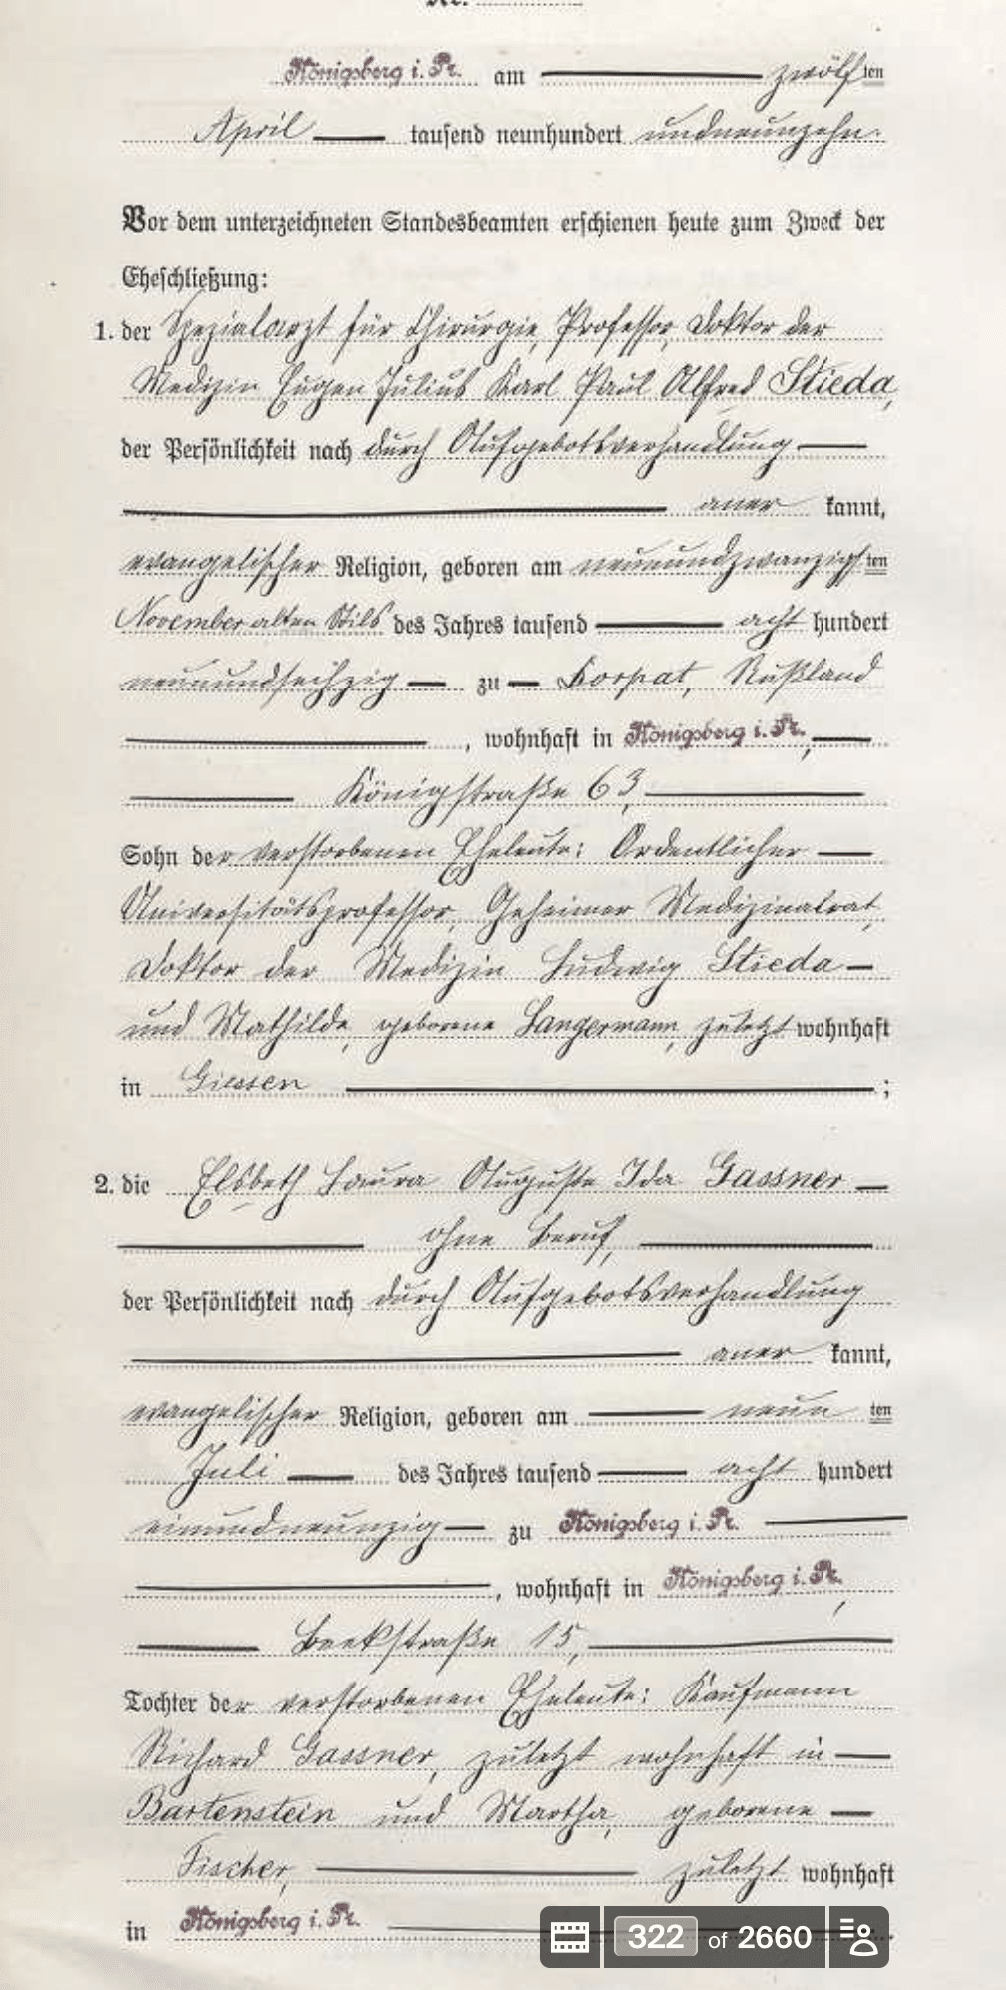 Nr.
Königsberg i. Pr. am zwölf ten
April tausend neunhundert undneunzehn.
Vor dem unterzeichneten Standesbeamten erschienen heute zum Zweck der
Eheschließung:
1. der Spezialarzt für Chirurgie, Professor, Doktor der
Medizin Eugen Julius Karl Paul Alfred Stieda,
der Persönlichkeit nach durch Aufgebotsverhandlung
aner kannt,
evangelischer Religion, geboren am neunundzwanzigsten
November alten Stils des Jahres tausend acht hundert
neunundsechzig zu Dorpat, Rußland
, wohnhaft in Königsberg i. Pr.,
Königstraße 63,
Sohn der verstorbenen Eheleute: Ordentlicher
Universitätsprofessor, Geheimer Medizinalrat,
Doktor der Medizin Ludwig Stieda
und Mathilde, geborene Langermann, zuletzt wohnhaft
in Giessen ;
2. die Elsbeth Laura Auguste Ida Gassner
ohne Beruf,
der Persönlichkeit nach durch Aufgebotsverhandlung
aner kannt,
evangelischer Religion, geboren am neun ten
Juli des Jahres tausend acht hundert
einundneunzig zu Königsberg i. Pr.
, wohnhaft in Königsberg i. Pr.,
Beekstraße 15,
Tochter der verstorbenen Eheleute: Kaufmann
Richard Gassner, zuletzt wohnhaft in
Bartenstein und Martha, geborene
Fischer, zuletzt wohnhaft
in Königsberg i. Pr.
322 of 2660